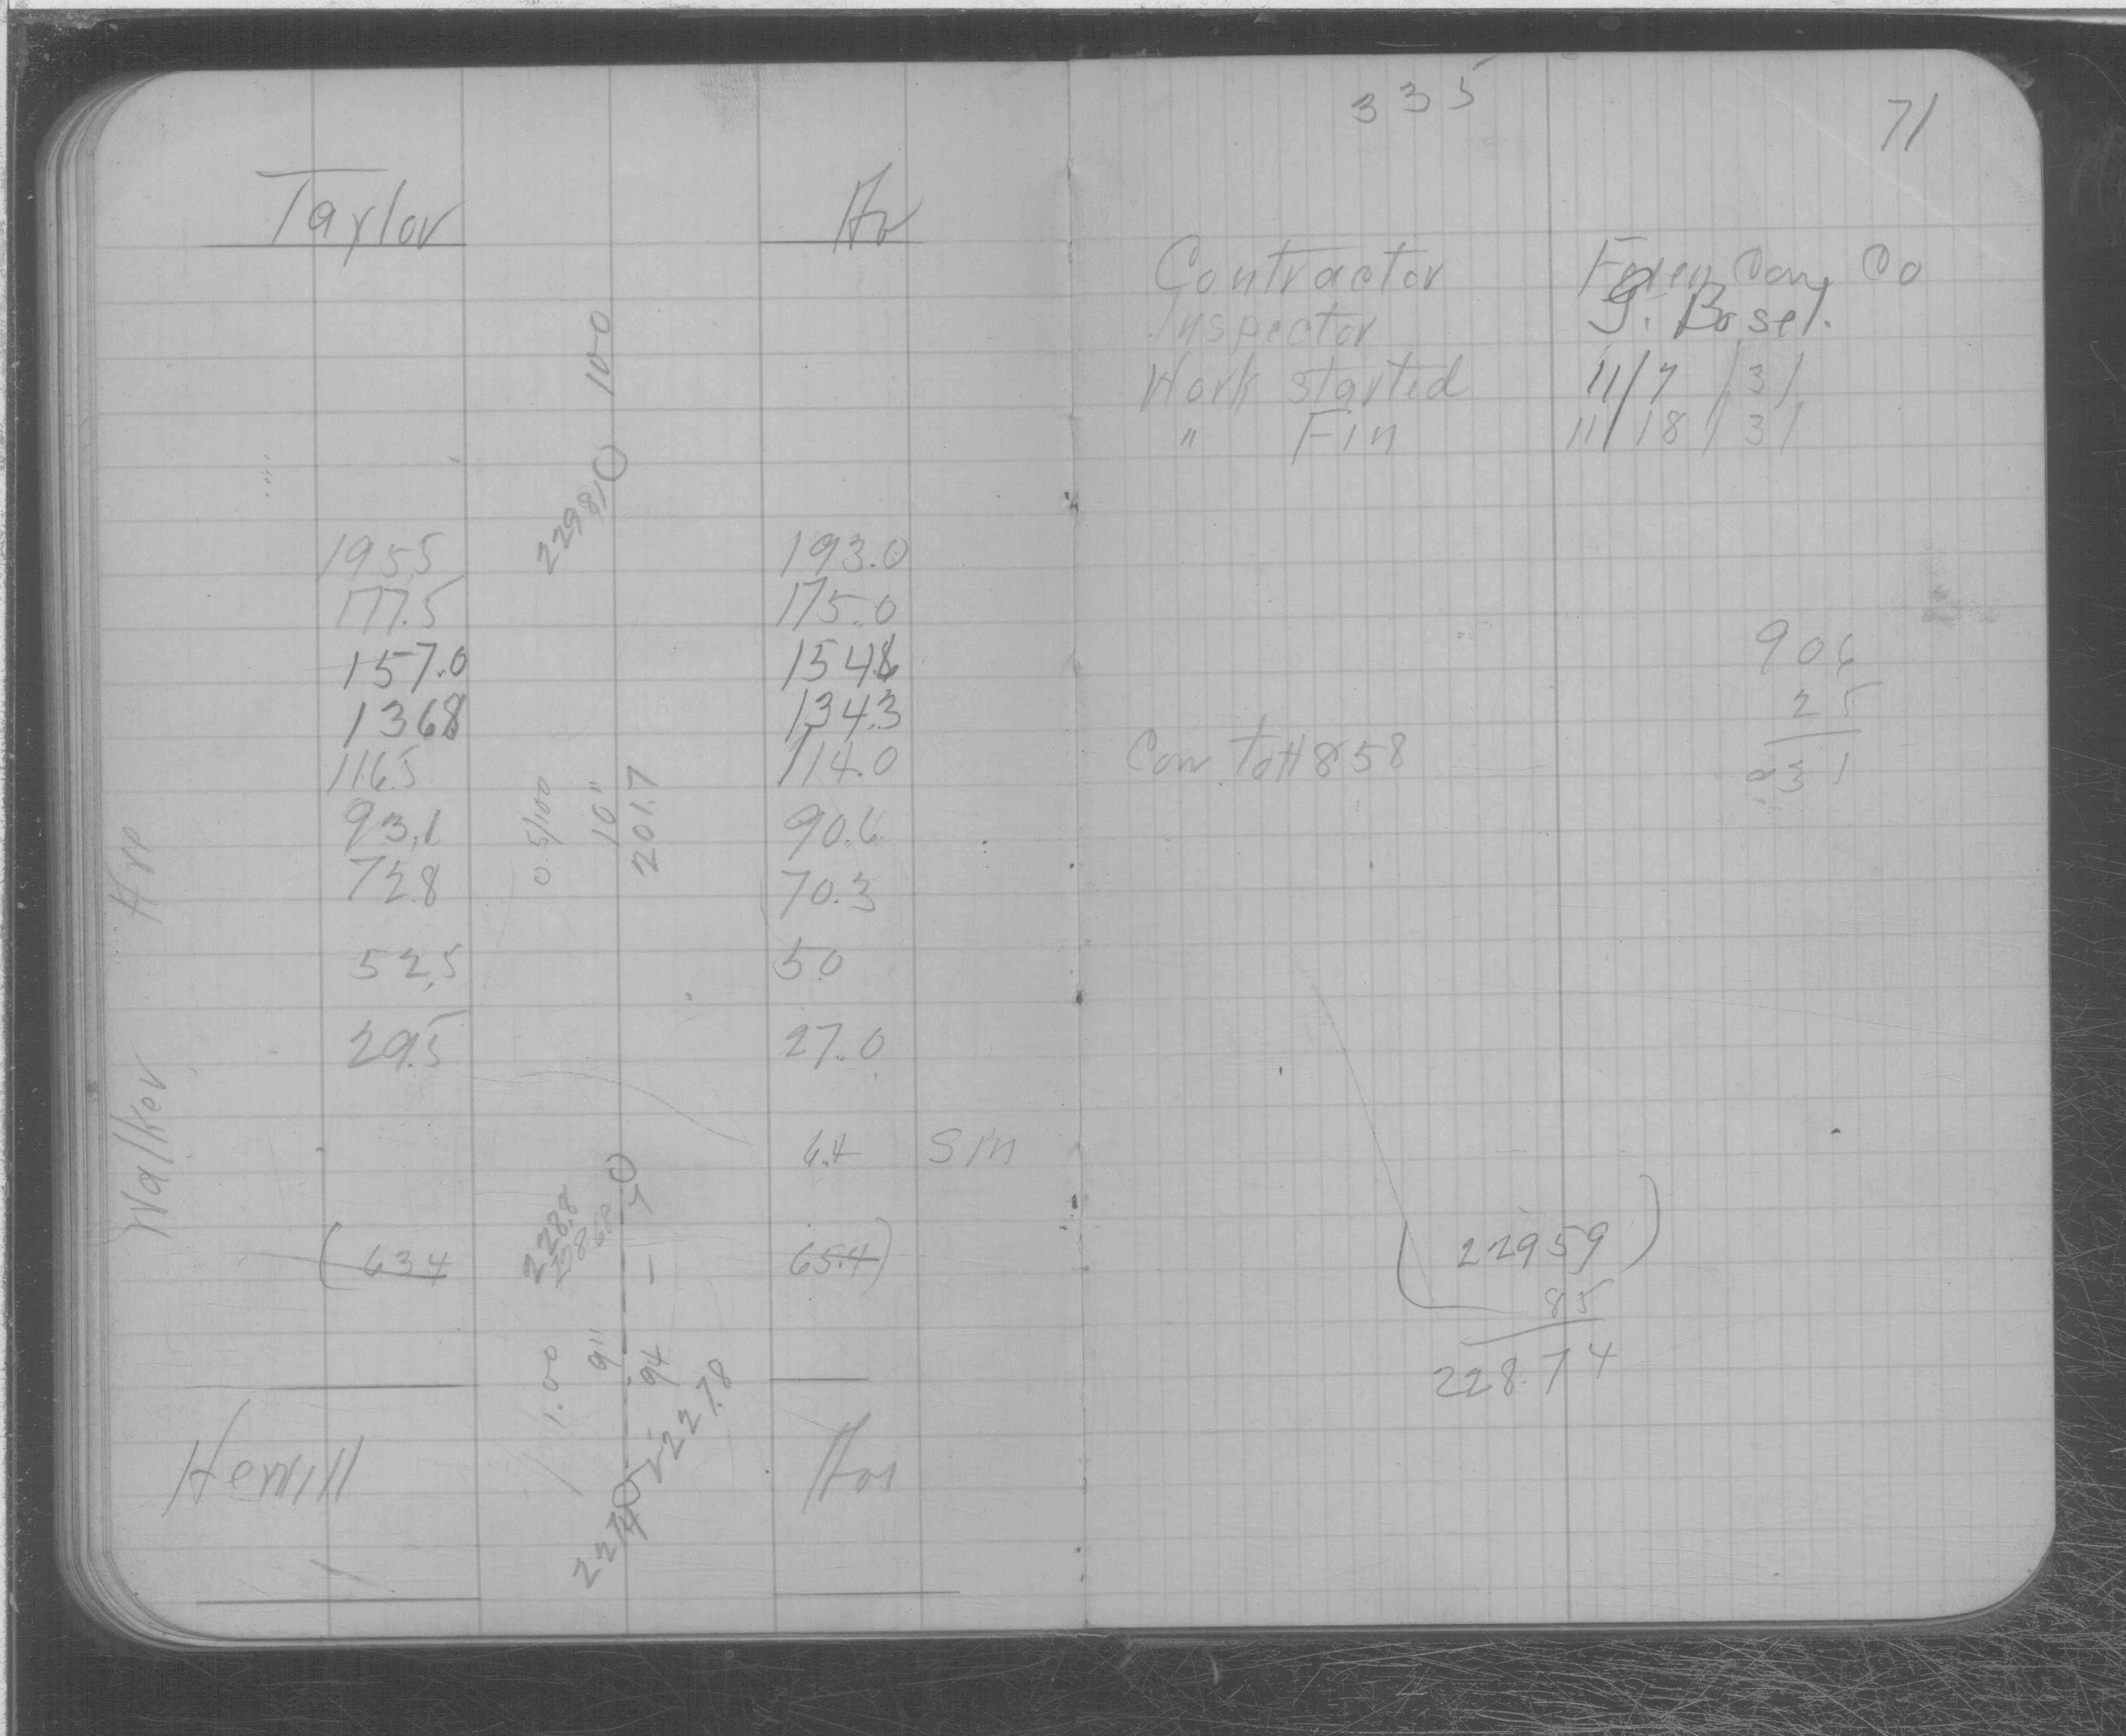 Taylor Av
100
229.81
195.5 193.0
177.5 175.0
157.0 154.8
136.8 134.3
116.5 114.0
93.1 90.6
72.8 70.3
0.5/100
10"
201.7
Hrp
52.5 50
29.5 27.0
Walker
6.4 Sin
228.8
(63.4 65.4)
1.00
9"
94
227.8
Herrill
335
71
Contractor Con. Co
Inspector J. Bosel.
Work started 11/7/31
" Fin 11/18/31
906
25
931
Con tot 858
(22959)
85
228.74